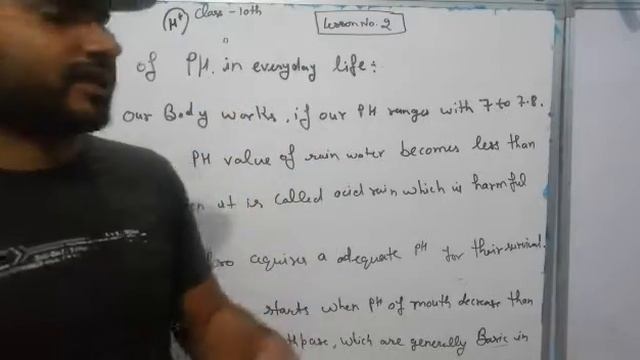 H+ Class - 10th Lesson No. 2
of PH. in everyday life:
our Body works, if our PH ranges with 7 to 7.8.
PH value of rain water becomes less than
it is called acid rain which is harmful
acquires a adequate PH for their survival.
starts when PH of mouth decrease than
which are generally Basic in